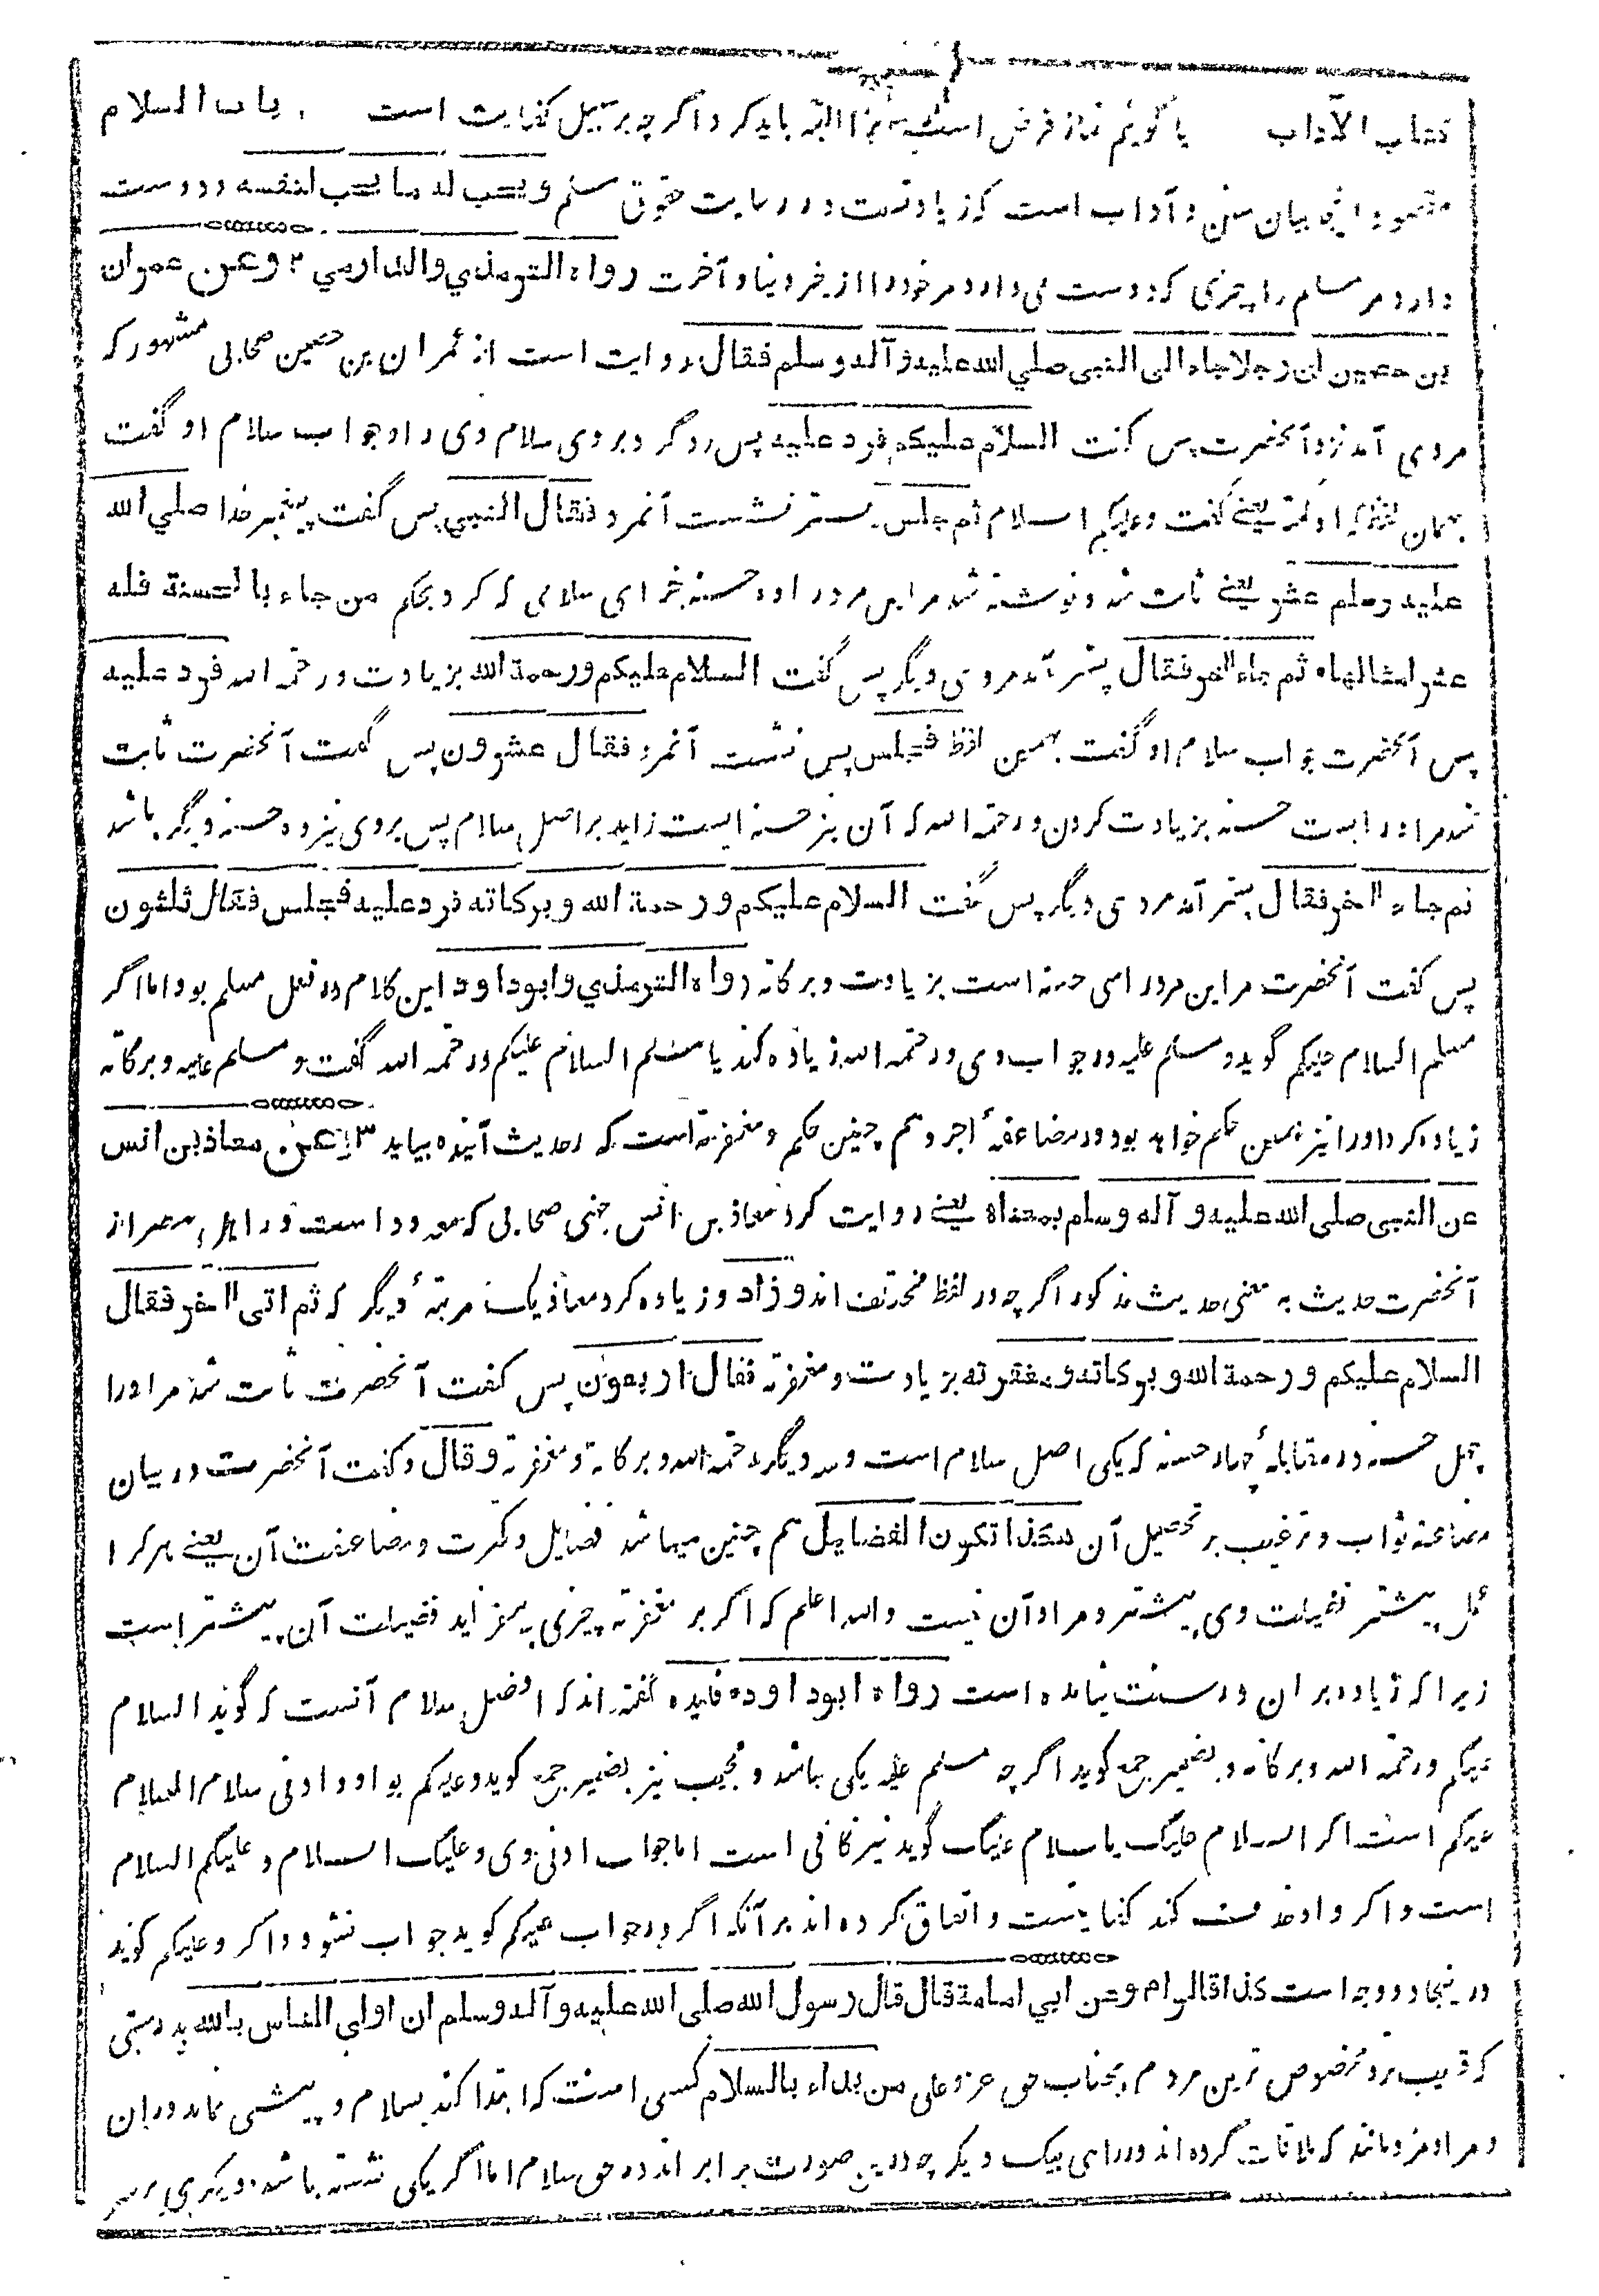 کتاب الآداب یا گوئیم نماز فرض است بجنازه البته باید کرد اگرچه بر سبیل کفایت است . باب السلام
مقصود اینجا بیان سنن و آداب است که زیادتست در رعایت حقوق مسلم و یحب له ما یحب لنفسه و دوست
دارد مر مسلم را چیزی که دوست می دارد مر خود را از خیر دنیا و آخرت رواه الترمذي والدارمي ۲ وعن عمران
بن حصین ان رجلا جاء الی النبی صلي الله علیه و آله وسلم فقال روایت است از عمران بن حصین صحابی مشهور که
مردی آمد نزد آنحضرت پس گفت السلام علیکم فرد علیه پس رد کرد بر وی سلام وی را و جواب سلام او گفت
بهمان لفظ که او گفته یعنے گفت وعلیکم السلام ثم جلس پستر نشست آنمرد فقال النبی پس گفت پیغمبر خدا صلي الله
علیه وسلم عشر یعنے ثابت شد و نوشته شد مر این مرد را ده حسنه جزای سلامی که کرد بحکم من جاء بالحسنة فله
عشر امثالها ثم جاء اٰخر فقال پستر آمد مردی دیگر پس گفت السلام علیکم ورحمة الله بزیادت ورحمة الله فرد علیه
پس آنحضرت جواب سلام او گفت بهمین لفظ فجلس پس نشست آنمرد فقال عشرون پس گفت آنحضرت ثابت
شد مر او را بست حسنه بزیادت کردن ورحمة الله که آن نیز حسنه ایست زاید بر اصل سلام پس بر وی نیز ده حسنه دیگر باشد
ثم جاء اٰخر فقال پستر آمد مردی دیگر پس گفت السلام علیکم ورحمة الله وبرکاته فرد علیه فجلس فقال ثلثون
پس گفت آنحضرت مر این مرد را سی حسنه است بزیادت وبرکاته رواه الترمذي وابوداود این کلام در فعل مسلم بود اما اگر
مسلم السلام علیکم گوید و مسلم علیه در جواب وی ورحمة الله زیاده کند یا مسلم السلام علیکم ورحمة الله گفت و مسلم علیه وبرکاته
زیاده کرد او را نیز همین حکم خواهد بود در مضاعفهٔ اجر و هم چنین حکم ومغفرته است که در حدیث آینده بیاید ۳ وعن معاذ بن انس
عن النبی صلی الله علیه و آله وسلم بمعناه یعنے روایت کرد معاذ بن انس جهنی صحابی که معدود است در اهل مصر از
آنحضرت حدیث به معنی حدیث مذکور اگرچه در لفظ مختلف اند و زاد و زیاده کرد معاذ یک مرتبهٔ دیگر که ثم اتی اٰخر فقال
السلام علیکم ورحمة الله وبرکاته ومغفرته بزیادت ومغفرته فقال اربعون پس گفت آنحضرت ثابت شد مر او را
چهل حسنه در مقابلهٔ چهار حسنه که یکی اصل سلام است و سه دیگر رحمة الله وبرکاته ومغفرته وقال و گفت آنحضرت در بیان
مضاعفه ثواب و ترغیب بر تحصیل آن هکذا تکون الفضایل هم چنین میباشد فضایل و کثرت و مضاعفت آن یعنے هر کرا
عمل بیشتر فضیلت وی بیشتر و مراد آن نیست والله اعلم که اگر بر مغفرته چیزی بیفزاید فضیلت آن بیشتر است
زیرا که زیاده بر ان در سنت نیامده است رواه ابوداوده فایده گفته اند که افضل سلام آنست که گوید السلام
علیکم ورحمة الله وبرکاته و بضمیر جمع گوید اگرچه مسلم علیه یکی باشد و مجیب نیز بضمیر جمع گوید وعلیکم بواو و ادنی سلام السلام
علیکم است اگر السلام علیک یا سلام علیک گوید نیز کافی است اما جواب ادنی وی وعلیک السلام و علیکم السلام
است و اگر واو حذف کند کفایتست و اتفاق کرده اند بر آنکه اگر در جواب علیکم گوید جواب نشود و اگر وعلیکم گوید
درینجا دو وجه است کذا قالوا م وعن ابي امامة قال قال رسول الله صلی الله علیه و آله وسلم ان اولی الناس بالله بدرستی
که قریب تر و مخصوص ترین مردم بجناب حق عز و علی من بدأ بالسلام کسی است که ابتدا کند بسلام و پیشی نماید دران
و مراد مردمانند که ملاقات کرده اند در راهی بیک دیگر چه درین صورت برابر اند در حق سلام اما اگر یکی نشسته باشد و دیگری بر سر